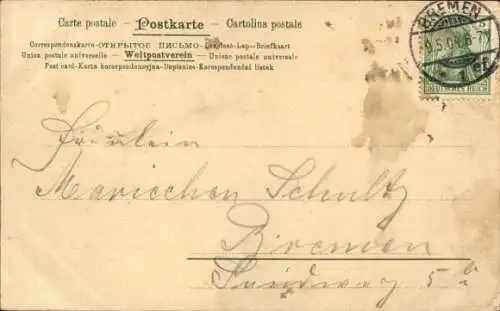 Carte postale — Postkarte — Cartolina postale
Correspondenzkarte-ОТКРЫТОЕ ПИСЬМО-Levelezö-Lap-Briefkaart
Union postale universelle — Weltpostverein — Unione postale universale
Post card-Karta korespondencyjna-Dopisnice-Korespondenční lístek
BREMEN
5
9.5.04. 6-7
DEUTSCHES REICH
Fräulein
Mariechen Schultz
Bremen
5 b